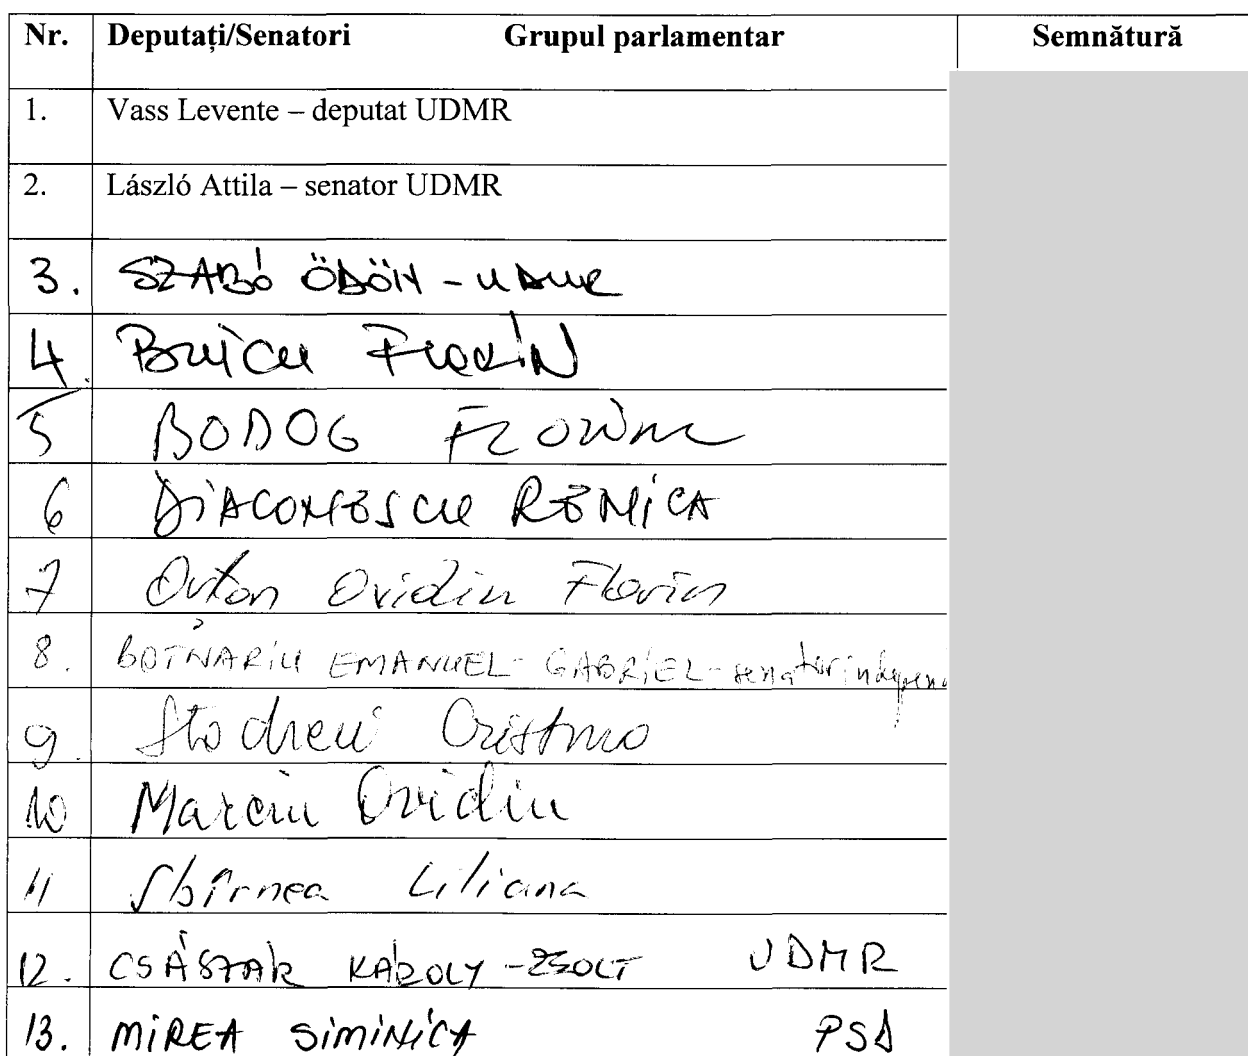 Nr. Deputați/Senatori Grupul parlamentar Semnătură
1. Vass Levente – deputat UDMR
2. László Attila – senator UDMR
3. SZABÓ ÖDÖN - UDMR
4. Bricu Florin
5 BODOG Florian
6 DIACONESCU RENICA
7 Ovidiu Florin
8. BOTNARIU EMANUEL-GABRIEL-senator
9. Cristina
10 Marciu Ovidiu
11 Sbîrnea Liliana
12. CSÁSZÁR KÁROLY-ZSOLT UDMR
13. MIREA SIMINICA PSD